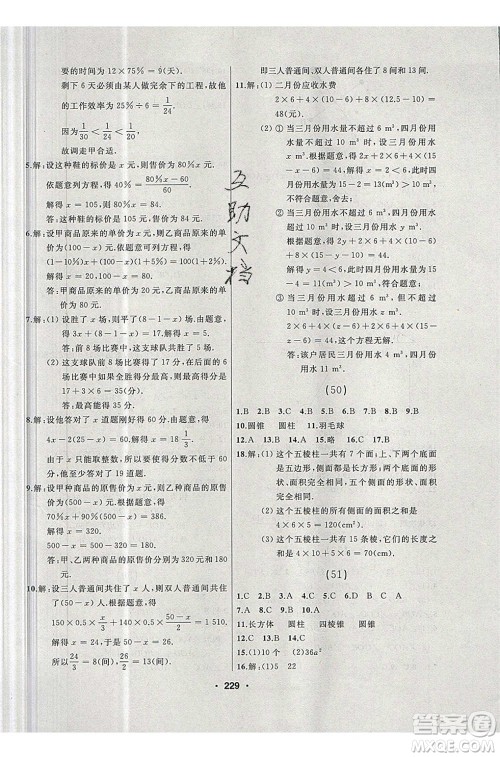 要的时间为 12×75%=9(天).
剩下 6 天必须由某人做完余下的工程,故他
的工作效率为 25%÷6=1/24.
因为 1/30<1/24<1/20.
故调走甲合适.
5.解:设这种鞋的标价是 x 元,则售价为 80%x.
依题意列方程,得 40%=(80%x-60)/60.
解得 x=105,这种鞋的标价为 105 元.
6.解:设甲商品原来的单价为 x 元,则乙商品原来的
单价为(100-x)元.依题意列方程,得
(1-10%)x+(1+40%)(100-x)=100(1+2%).
解得 x=20,100-x=80.
答:甲商品原来的单价为 20 元,乙商品原来的单
价为 80 元.
7.解:(1)设胜了 x 场,平了(8-1-x)场.依题意,得
3x+(8-1-x)=17.解得 x=5.
答:前 8 场比赛中,胜了 5 场.
(2)这支球队前 8 场得了 17 分,在后面的 6
场比赛中,每场都胜,得分最高,则
17+3×6=35(分).
答:最高能得 35 分.
8.解:设他答对了 x 道题刚好得 60 分.根据题意,得
4x-2(25-x)=60.解得 x=18 1/3.
由于 x 只能取整数,所以他至少答对了 19 题.
答:他至少答对了 19 道题.
9.解:设甲种商品的原售价为 x 元,则乙种商品的原
售价为(500-x)元.根据题意,得
70%x+90%(500-x)=386.
解得 x=320.
500-x=500-320=180.
答:甲种商品的原售价为 320 元,乙种商品的原
售价为 180 元.
10.解:设三人普通间共住了 x 人,则双人普通间共住
了(50-x)人.根据题意,得
150×x/3×0.5+140×(50-x)/2×0.5=1 510.
解得 x=24.
所以 24/3=8(间),26/2=13(间).
即三人普通间、双人普通间各住了 8 间和 13 间.
11.解:(1)二月份应收水费
2×6+4×(10-6)+8×(12.5-10)=
48(元).
(2)① 当三月份用水量不超过 6 m³,四月份
用水不超过 10 m³ 时,设三月份用水
x m³.根据题意,得 2x+2×6+4×(15-
x-6)=44.解得 x=2.
因为 15-2=13>10,此时四月份用水超
过 10 m³,不符合题意.
② 当三月份用水量不超过 6 m³,四月份
用水超过 10 m³ 时,设三月份用水量为
y m³.根据题意,得 2y+2×6+4×4+8×
(15-y-10)=44,解得 y=4.
因为 15-4=11>10,此时四月份用水超
过 10 m³,符合题意.
③ 当三月份用水超过 6 m³,四月份用水
也超过 6 m³ 时,设三月份用水 z m³.
2×6+4(z-6)+2×6+4(15-z-6)
=44.
方程无解.
答:该户居民三月份用水 4 m³,四月份
用水 11 m³.
(50)
1.B 2.B 3.C 4.B 5.B 6.D 7.C 8.B 9.A
10.圆锥 圆柱 11.羽毛球
12.A 13.A 14.A 15.略 16.C 17.C
18.解:(1)这个五棱柱共有 7 个面,上下两个底面
是五边形,侧面是长方形;上下两个底面的
形状、面积完全相同,侧面的形状、面积完
全相同.
(2)这个五棱柱的所有侧面的面积之和是
4×10×5=200(cm²).
(3)这个五棱柱共有 15 条棱,它们的长度之
和是 4×10+5×10=90(cm).
(51)
1.C 2.B 3.C 4.D 5.B C A
7.A 8.D 9.C 10.B
11.长方体 圆柱 四棱锥 圆锥
12.C 13.B 14.A
15.(1)10 个 (2)36a²
16.解:(1)5 22
· 229 ·
互助文档
答案圈
MXQE.COM